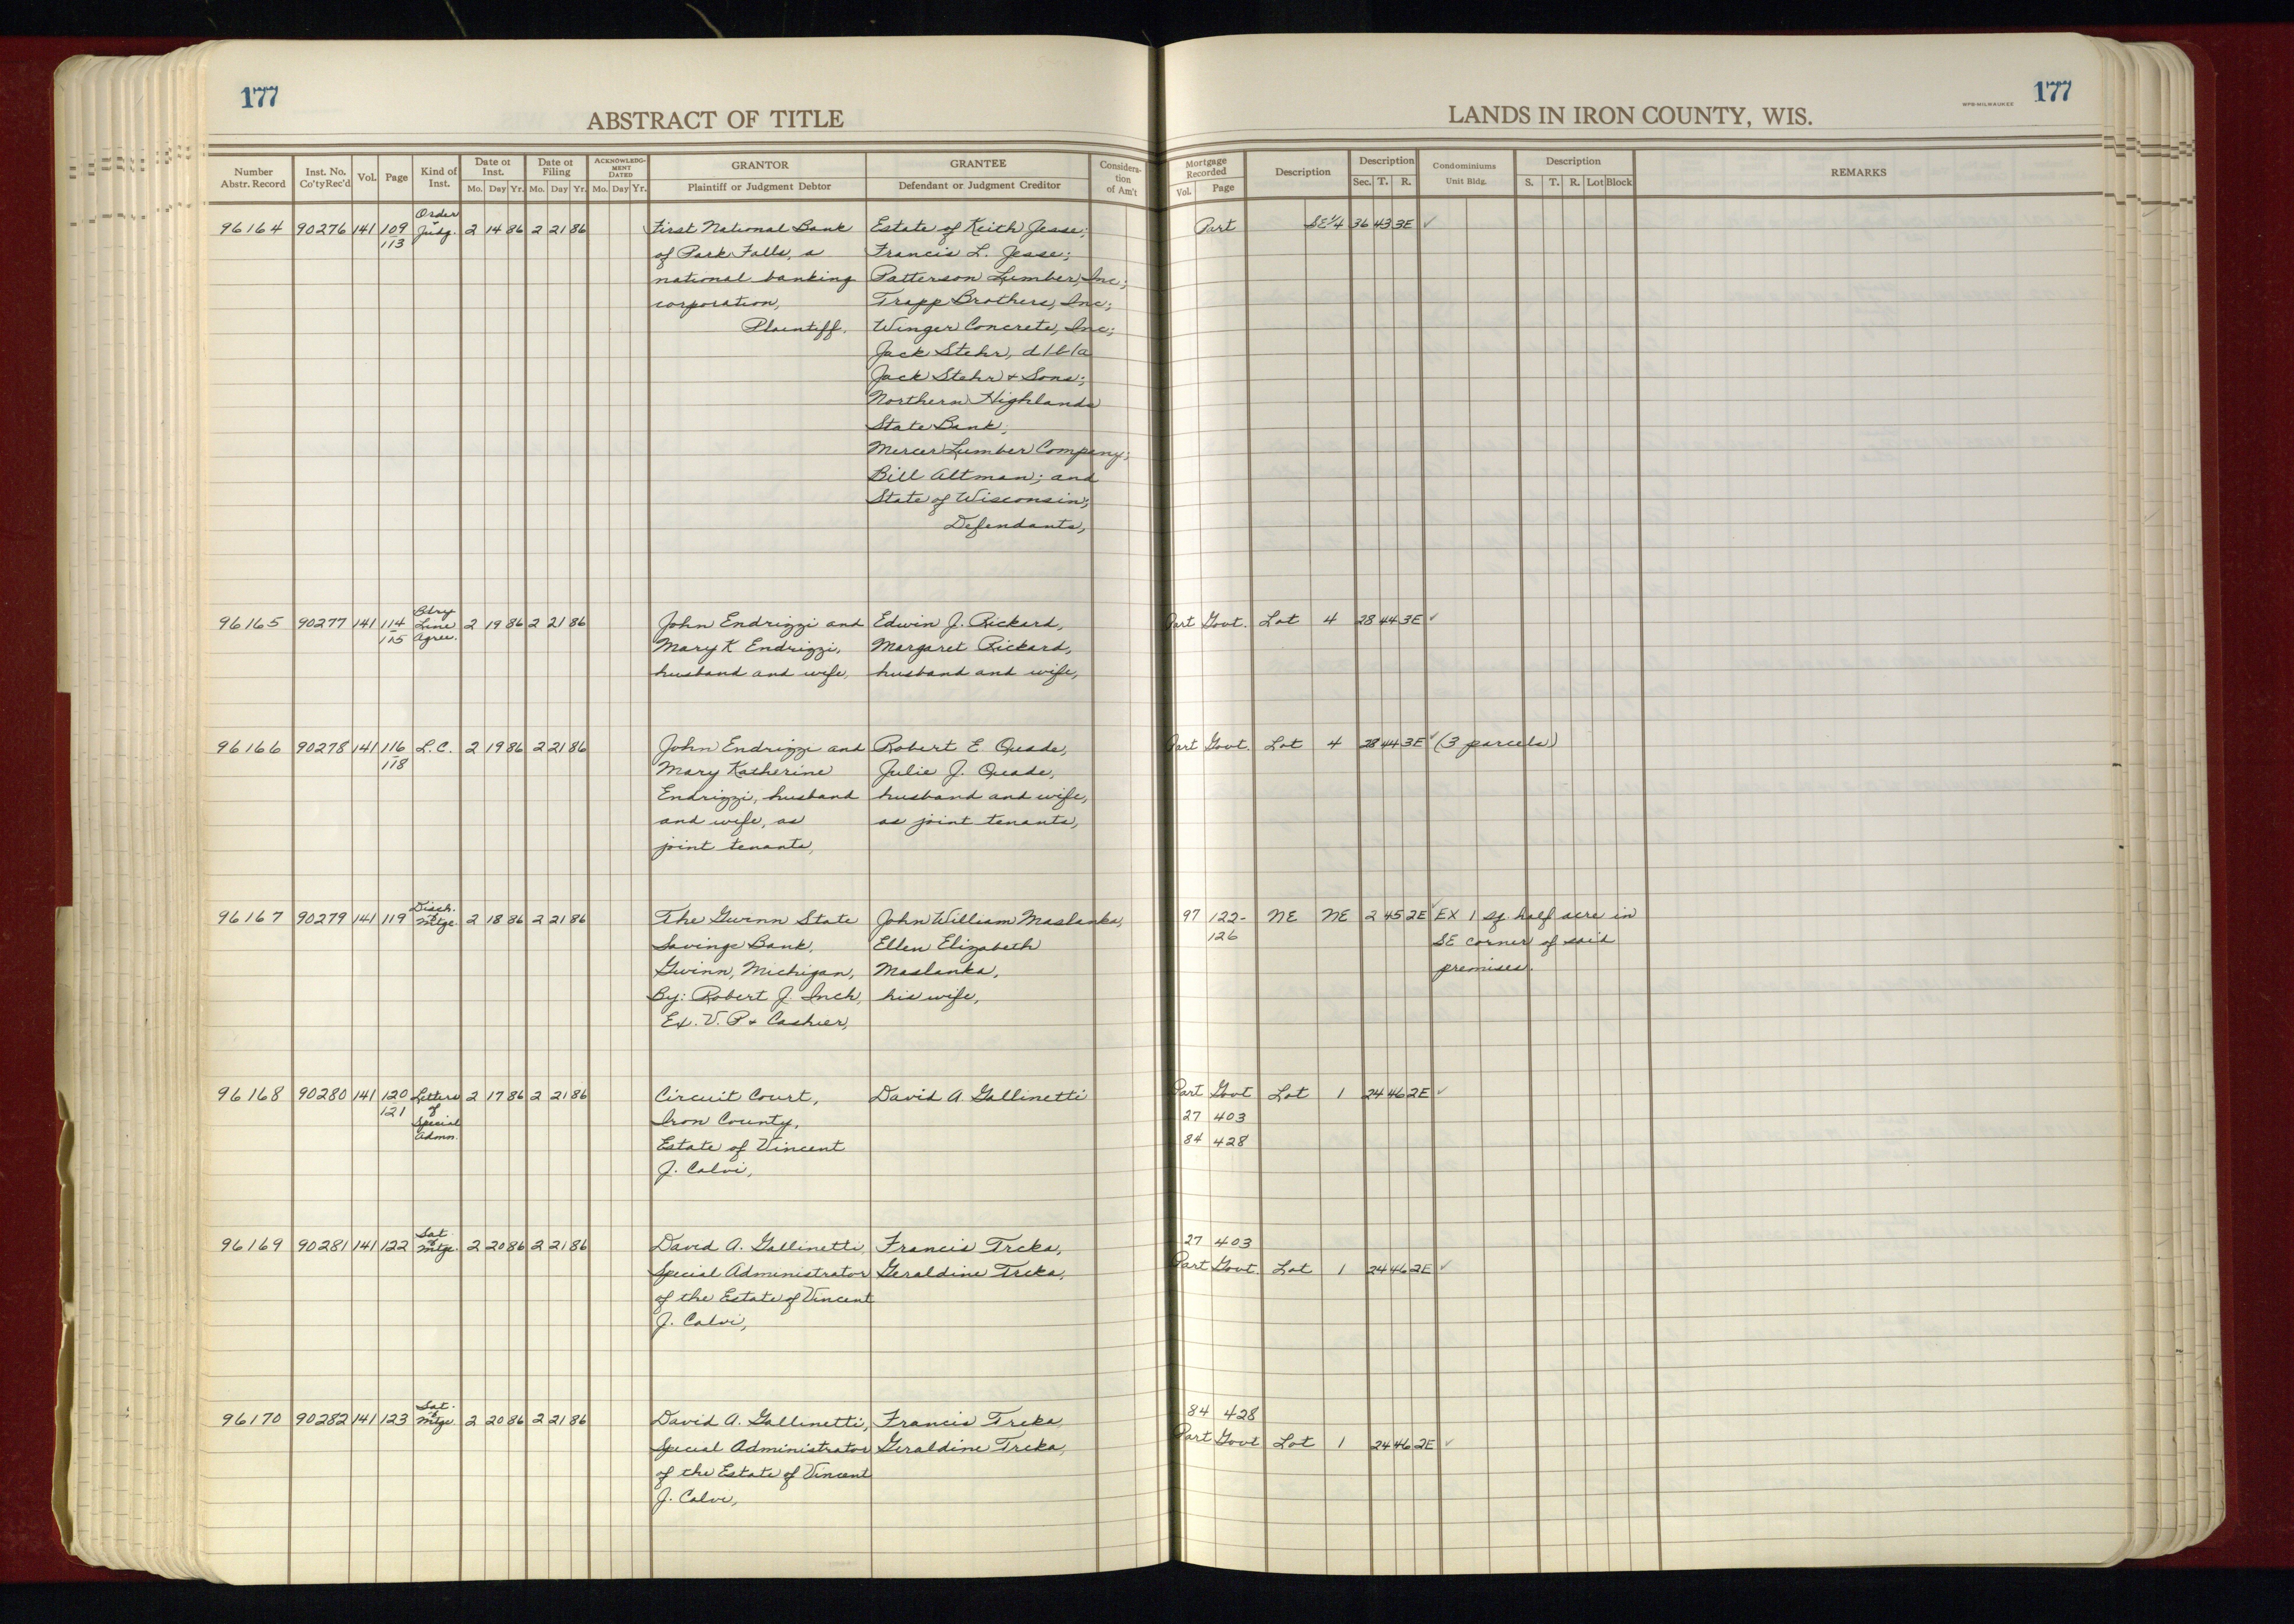 177
ABSTRACT OF TITLE
LANDS IN IRON COUNTY, WIS.
WPB-MILWAUKEE
177
Number Abstr. Record
Inst. No. Co'ty Rec'd
Vol.
Page
Kind of Inst.
Date of Inst. Mo. Day Yr.
Date of Filing Mo. Day Yr.
ACKNOWLEDG-MENT DATED Mo. Day Yr.
GRANTOR Plaintiff or Judgment Debtor
GRANTEE Defendant or Judgment Creditor
Considera-tion of Am't
Mortgage Recorded Vol. Page
Description
Description Sec. T. R.
Condominiums Unit Bldg.
Description S. T. R. Lot Block
REMARKS
Order
96164 90276 141 109 & Judg. 2 14 86 2 21 86 First National Bank Estate of Keith Jesse; Part SE 1/4 36 43 3E ✓
113 of Park Falls, a Francis L. Jesse;
national banking Patterson Lumber, Inc;
corporation, Trapp Brothers, Inc;
Plaintiff. Winger Concrete, Inc;
Jack Stehr, d/b/a
Jack Stehr & Sons;
Northern Highlands
State Bank;
Mercer Lumber Company;
Bill Altman; and
State of Wisconsin;
Defendants,
Bdry
96165 90277 141 114 Line 2 19 86 2 21 86 John Endrizzi and Edwin J. Rickard, Part Govt. Lot 4 28 44 3E ✓
115 Agree. Mary K Endrizzi, Margaret Rickard,
husband and wife, husband and wife,
96166 90278 141 116 L.C. 2 19 86 2 21 86 John Endrizzi and Robert E. Quade, Part Govt. Lot 4 28 44 3E ✓ (3 parcels)
118 Mary Katherine Julie J. Quade,
Endrizzi, husband husband and wife,
and wife, as as joint tenants,
joint tenants,
Disch.
96167 90279 141 119 of Mtge. 2 18 86 2 21 86 The Gwinn State John William Maslanka, 97 122- NE NE 2 45 2E ✓ EX 1 sq. half acre in
Savings Bank, Ellen Elizabeth 126 SE corner of said
Gwinn, Michigan, Maslanka, premises.
By: Robert J. Inch, his wife,
Ex. V. P & Cashier,
96168 90280 141 120 Letters 2 17 86 2 21 86 Circuit Court, David A. Gallinetti Part Govt Lot 1 24 46 2E ✓
121 of Iron County, 27 403
Special Estate of Vincent 84 428
Admn. J. Calvi,
Sat.
96169 90281 141 122 of Mtge. 2 20 86 2 21 86 David A. Gallinetti, Francis Treka, 27 403
Special Administrator Geraldine Treka, Part Govt. Lot 1 24 46 2E ✓
of the Estate of Vincent
J. Calvi,
Sat.
96170 90282 141 123 of Mtge. 2 20 86 2 21 86 David A. Gallinetti, Francis Treka, 84 428
Special Administrator Geraldine Treka, Part Govt Lot 1 24 46 2E ✓
of the Estate of Vincent
J. Calvi,